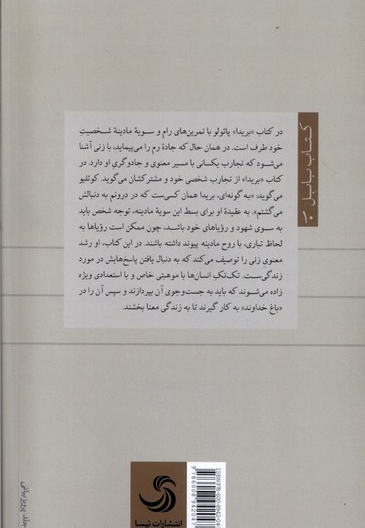 در کتاب «بریدا» پائولو با تمرین‌های رام و سویهٔ مادینهٔ شخصیتِ
خود طرف است. در همان حال که جادهٔ رم را می‌پیماید، با زنی آشنا
می‌شود که تجارب یکسانی با مسیر معنوی و جادوگریِ او دارد. در
کتاب «بریدا» از تجارب شخصی خود و مشترکشان می‌گوید. کوئلیو
می‌گوید: «به گونه‌ای، بریدا همان کسی‌ست که در درونم به دنبالش
می‌گشتم». به عقیدهٔ او برای بسط این سویهٔ مادینه، توجه شخص باید
به سوی شهود و رؤیاهای خود باشد، چون ممکن است رؤیاها به
لحاظ تباری، با روح مادینه پیوند داشته باشند. در این کتاب، او رشد
معنوی زنی را توصیف می‌کند که به دنبال یافتن پاسخ‌هایش در مورد
زندگی‌ست. تک‌تکِ انسان‌ها با موهبتی خاص و با استعدادی ویژه
زاده می‌شوند که باید به جست‌وجوی آن بپردازند و سپس آن را در
«باغ خداوند» به کار گیرند تا به زندگی معنا بخشند.
کتاب بابیل
انتشارات تیسا